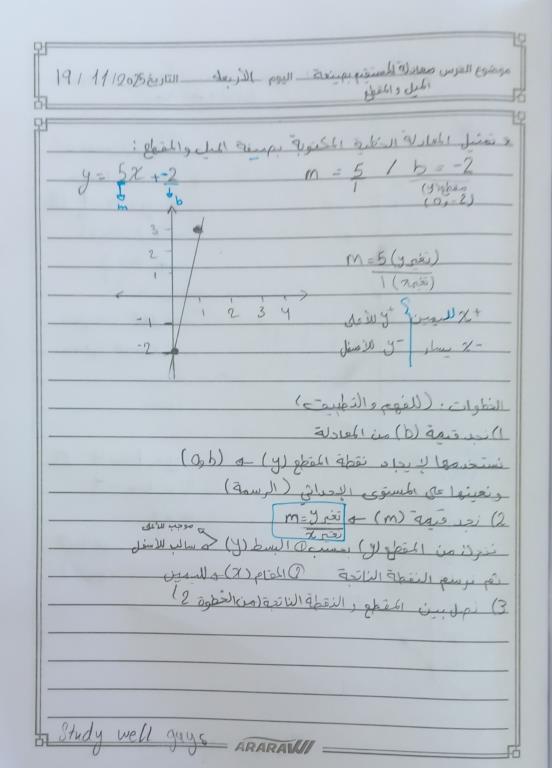 موضوع الدرس معادلة المستقيم بصيغة اليوم الأربعاء التاريخ 19/11/2025
الميل والمقطع
* تمثيل المعادلة الخطية المكتوبة بصيغة الميل والمقطع :
y = 5x + -2
m = 5/1 / b = -2
m b
(مقطع y)
(0, -2)
3
2
1
1 2 3 4
-1
-2
m = 5 (تغير y)
1 (تغير x)
x+ لليمين y+ للأعلى
x- يسار y- للأسفل
الخطوات : (للفهم والتطبيق)
1) نجد قيمة (b) من المعادلة
نستخدمها لإيجاد نقطة المقطع (y) ← (0,b)
ونعينها على المستوى الإحداثي (الرسمة)
2) نجد قيمة (m) ← m = تغير y / تغير x
نتحرك من المقطع (y) بحسب ① البسط (y) موجب للأعلى سالب للأسفل
ثم نرسم النقطة الناتجة ② المقام (x) ← لليمين
3) نصل بين المقطع والنقطة الناتجة (من الخطوة 2)
Study well guys
ARARAWI